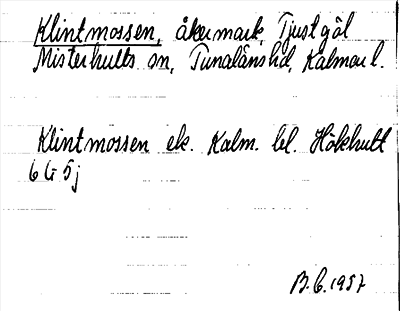 Klintmossen, åkermark, Tjustgöl
Misterhults sn, Tunalänshd, Kalmar l.
Klintmossen ek. Kalm. bl. Hökhult
6 G 5j
B.G. 1957